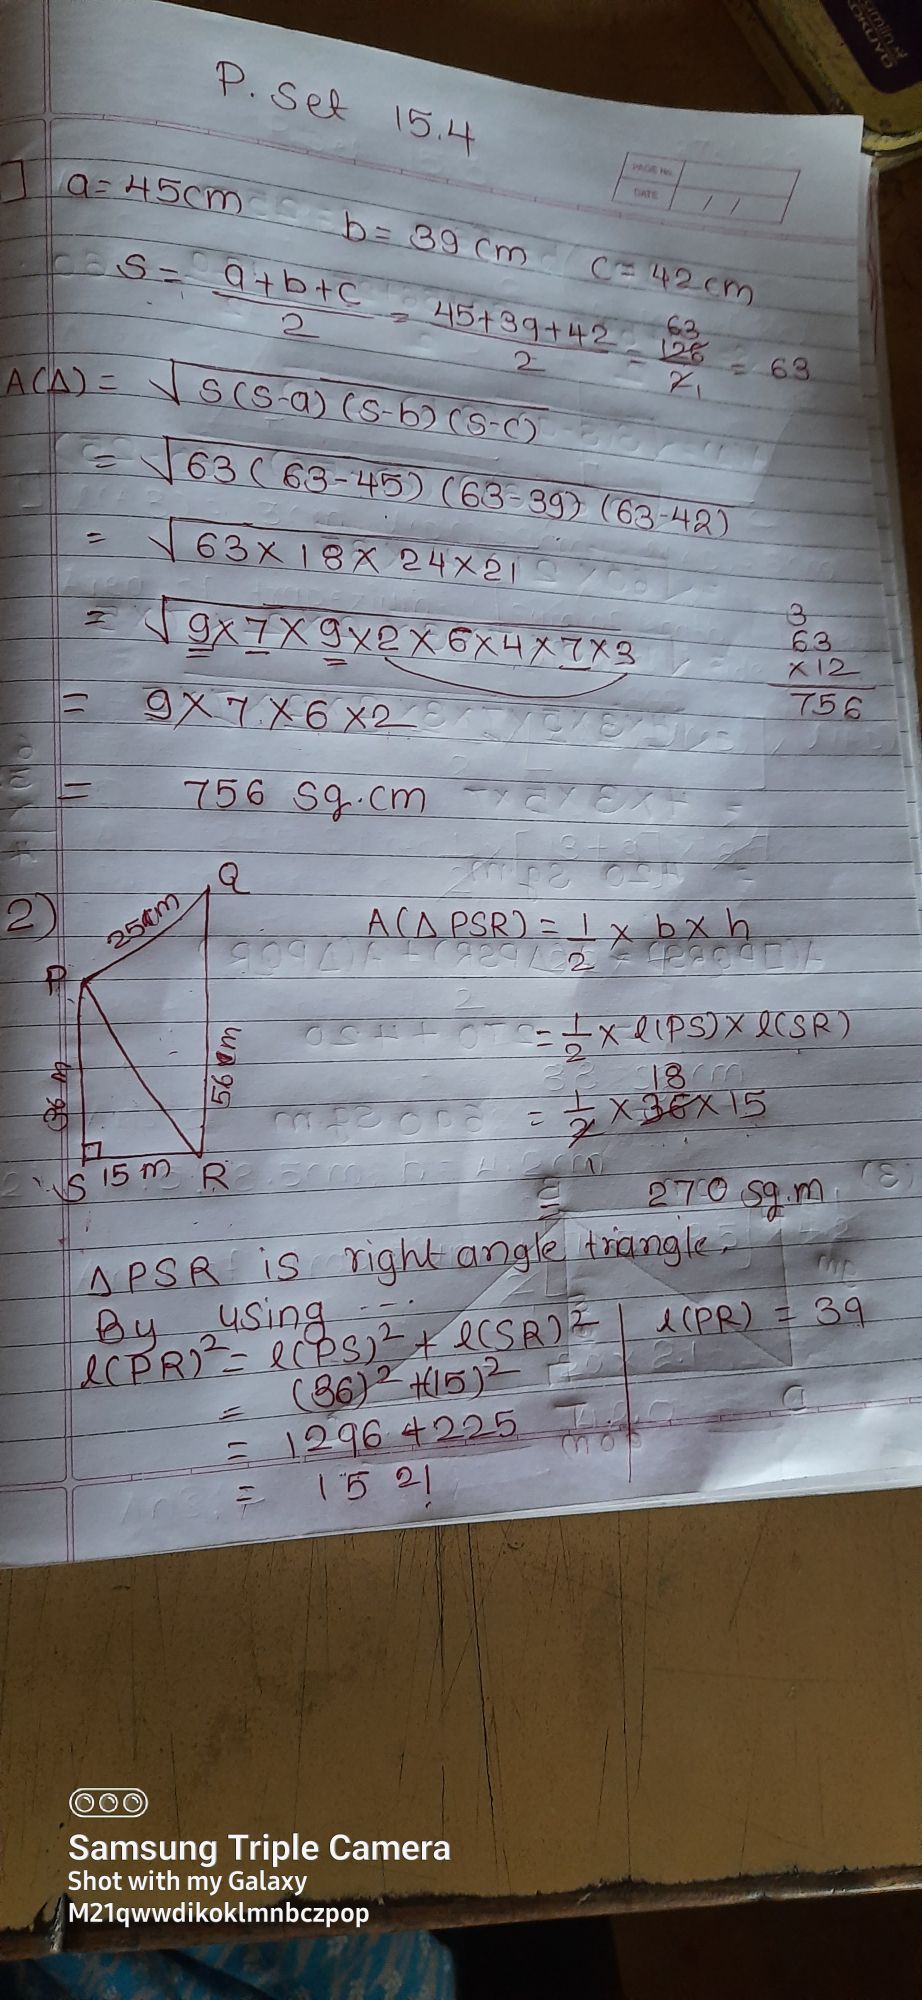 P. Set 15.4
PAGE No.
DATE / /
a = 45cm b = 39 cm c = 42 cm
S = a+b+c/2 = 45+39+42/2 = 63 126/2 1 = 63
A(Δ) = √S(S-a) (S-b) (S-c)
= √63 (63-45) (63-39) (63-42)
= √63 × 18 × 24 × 21
= √9×7×9×2×6×4×7×3
3
63
×12
756
= 9×7×6×2
= 756 sq.cm
2)
Q
25cm
P
36 m
56 cm
S 15 m R
A(Δ PSR) = 1/2 × b × h
= 1/2 × l(PS) × l(SR)
18
= 1/2 × 36 × 15
= 270 sq.m
Δ PSR is right angle triangle.
By using ---
l(PR)² = l(PS)² + l(SR)²
= (36)² + (15)²
= 1296 + 225
= 1521
l(PR) = 39
Samsung Triple Camera
Shot with my Galaxy
M21qwwdikoklmnbczpop